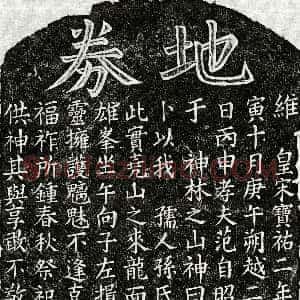 地券
維 皇宋寶祐二年
寅十月庚午朔越二
日丙申孝夫范自昭
于 神林之山神曰
卜以我 孺人孫氏
此實克山之來龍面
雄峯坐午向子左揖
靈擁護魑魅不逢克
福祚所鍾春秋祭祀
供神其與享敢不敬